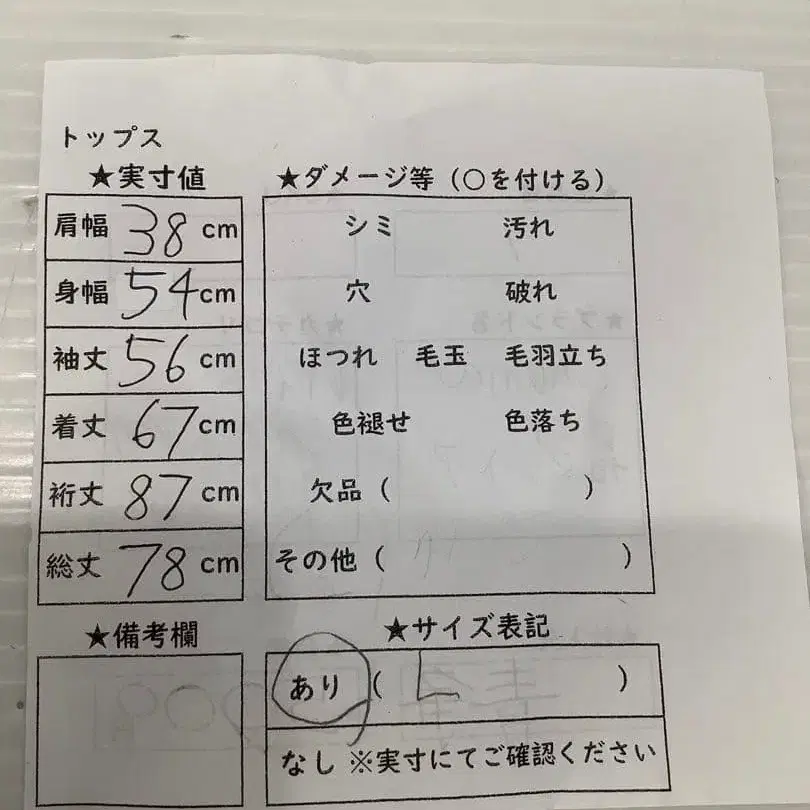 トップス
★実寸値
肩幅 38 cm
身幅 54 cm
袖丈 56 cm
着丈 67 cm
裄丈 87 cm
総丈 78 cm
★ダメージ等（○を付ける）
シミ 汚れ
穴 破れ
ほつれ 毛玉 毛羽立ち
色褪せ 色落ち
欠品（ ）
その他（ ）
★備考欄
★サイズ表記
あり（ L ）
なし ※実寸にてご確認ください